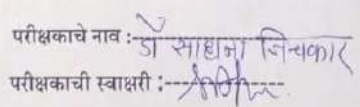 परीक्षकाचे नाव :- डॉ साधना जिचकार
परीक्षकाची स्वाक्षरी :-